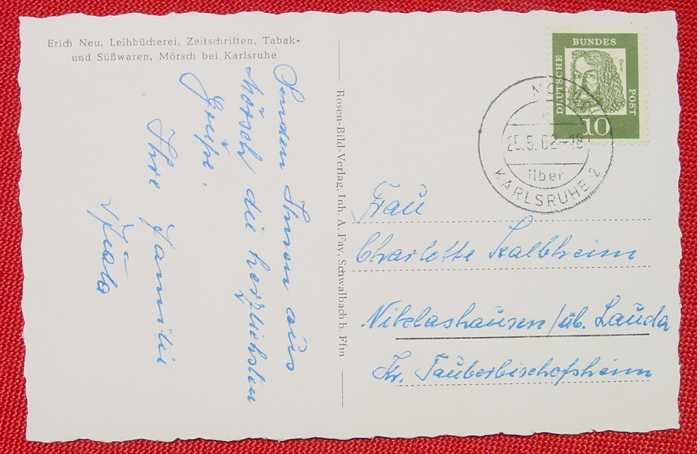 Erich Neu, Leihbücherei, Zeitschriften, Tabak-
und Süßwaren, Mörsch bei Karlsruhe
Senden Ihnen aus
Mörsch die herzlichsten
Grüße.
Ihre Familie
Rosen-Bild-Verlag, Inh. A. Fay, Schwalbach b. Ffm
DEUTSCHE
BUNDES
POST
10
25.5.62-18
über
KARLSRUHE 2
Frau
Charlotte Kalbheim
Nikolashausen/üb. Lauda
Kr. Tauberbischofsheim